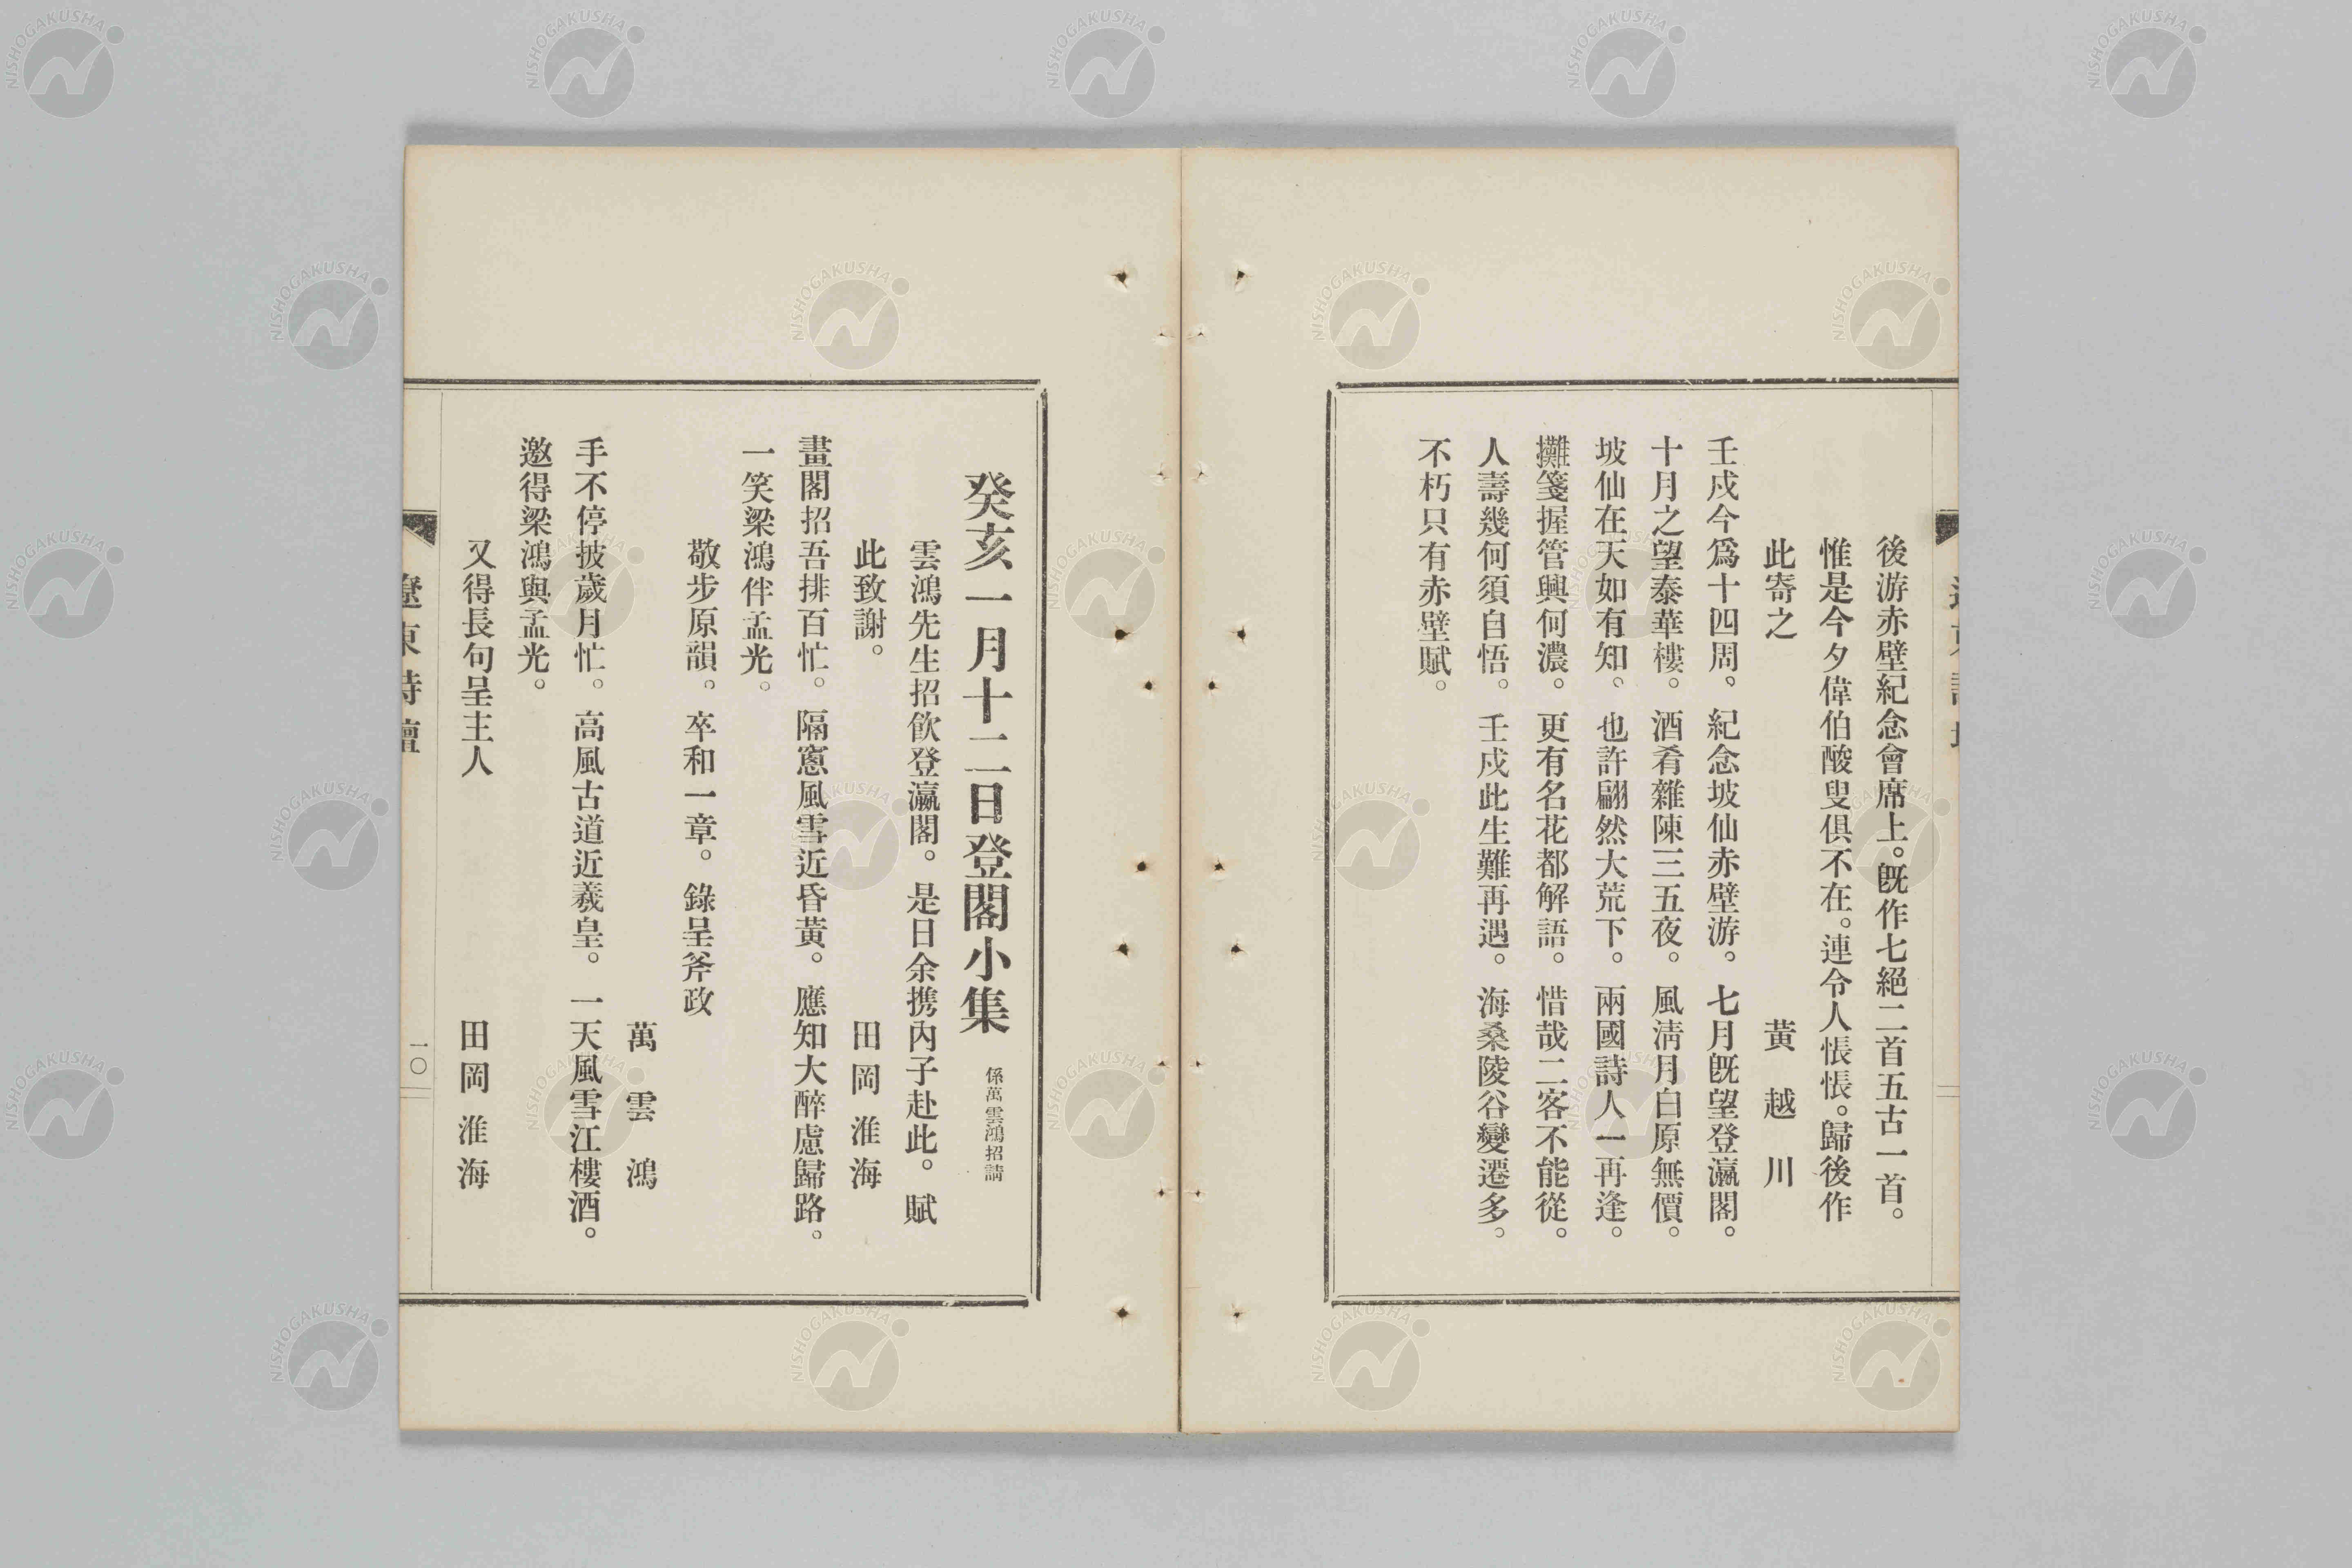 後游赤壁紀念會席上。既作七絕二首五古一首。
惟是今夕偉伯酸叟俱不在。連令人悵悵。歸後作
此寄之
黃越川
壬戌今爲十四周。紀念坡仙赤壁游。七月既望登瀛閣。
十月之望泰華樓。酒肴雜陳三五夜。風淸月白原無價。
坡仙在天如有知。也許翩然大荒下。兩國詩人一再逢。
攤箋握管興何濃。更有名花都解語。惜哉二客不能從。
人壽幾何須自悟。壬戌此生難再遇。海桑陵谷變遷多。
不朽只有赤壁賦。
癸亥一月十二日登閣小集 係萬雲鴻招請
雲鴻先生招飮登瀛閣。是日余携內子赴此。賦
此致謝。
田岡淮海
畫閣招吾排百忙。隔窻風雪近昏黃。應知大醉慮歸路。
一笑梁鴻伴孟光。
敬步原韻。卒和一章。錄呈斧政
萬雲鴻
手不停披歲月忙。高風古道近羲皇。一天風雪江樓酒。
邀得梁鴻與孟光。
又得長句呈主人
田岡淮海
遼東詩壇
一〇
NISHOGAKUSHA